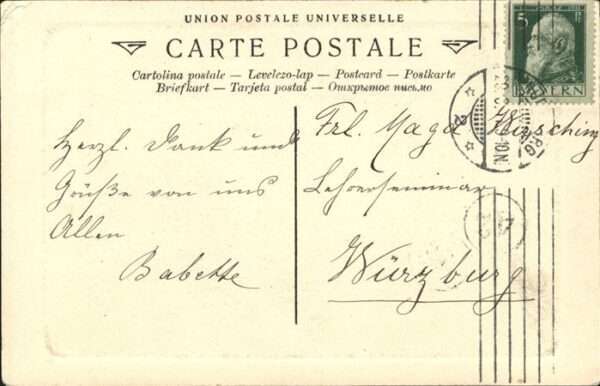 UNION POSTALE UNIVERSELLE
CARTE POSTALE
Cartolina postale — Levelezo-lap — Postcard — Postkarte
Briefkart — Tarjeta postal — Открытое письмо
5 Pf
BAYERN
Herzl. Dank und
Grüße von uns
Allen
Babette
Frl. Magd. Hirsching
Lehrerseminar
Würzburg